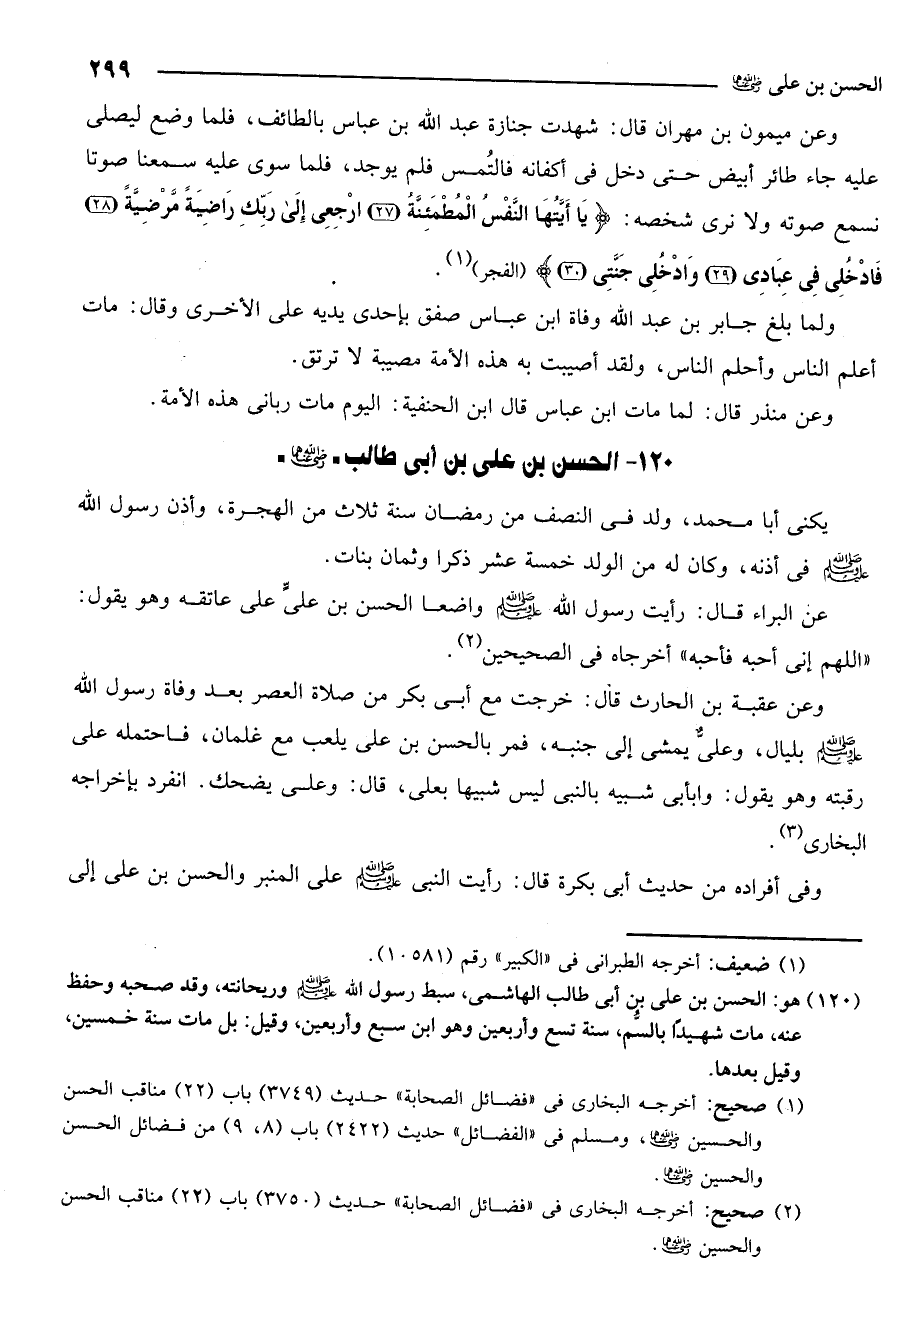 الحسن بن على رضي الله عنهما ٢٩٩
وعن ميمون بن مهران قال: شهدت جنازة عبد الله بن عباس بالطائف، فلما وضع ليصلى
عليه جاء طائر أبيض حتى دخل فى أكفانه فالتُمس فلم يوجد، فلما سوى عليه سمعنا صوتا
نسمع صوته ولا نرى شخصه: ﴿ يَا أَيَّتُهَا النَّفْسُ الْمُطْمَئِنَّةُ (٢٧) ارْجِعِى إِلَىٰ رَبِّكِ رَاضِيَةً مَّرْضِيَّةً (٢٨)
فَادْخُلِى فِى عِبَادِى (٢٩) وَادْخُلِى جَنَّتِى (٣٠) ﴾ (الفجر)(١).
ولما بلغ جابر بن عبد الله وفاة ابن عباس صفق بإحدى يديه على الأخرى وقال: مات
أعلم الناس وأحلم الناس، ولقد أصيبت به هذه الأمة مصيبة لا ترتق.
وعن منذر قال: لما مات ابن عباس قال ابن الحنفية: اليوم مات ربانى هذه الأمة.
١٢٠- الحسن بن على بن أبى طالب - رضي الله عنهما -
يكنى أبا محمد، ولد فى النصف من رمضان سنة ثلاث من الهجرة، وأذن رسول الله
ﷺ فى أذنه، وكان له من الولد خمسة عشر ذكرا وثمان بنات.
عن البراء قال: رأيت رسول الله ﷺ واضعا الحسن بن علىٍّ على عاتقه وهو يقول:
«اللهم إنى أحبه فأحبه» أخرجاه فى الصحيحين(٢).
وعن عقبة بن الحارث قال: خرجت مع أبى بكر من صلاة العصر بعد وفاة رسول الله
ﷺ بليال، وعلىٌّ يمشى إلى جنبه، فمر بالحسن بن على يلعب مع غلمان، فاحتمله على
رقبته وهو يقول: وابأبى شبيه بالنبى ليس شبيها بعلى، قال: وعلى يضحك. انفرد بإخراجه
البخارى(٣).
وفى أفراده من حديث أبى بكرة قال: رأيت النبى ﷺ على المنبر والحسن بن على إلى
(١) ضعيف: أخرجه الطبرانى فى «الكبير» رقم (١٠٥٨١).
(١٢٠) هو: الحسن بن على بن أبى طالب الهاشمى، سبط رسول الله ﷺ وريحانته، وقد صحبه وحفظ
عنه، مات شهيدًا بالسُّم، سنة تسع وأربعين وهو ابن سبع وأربعين، وقيل: بل مات سنة خمسين،
وقيل بعدها.
(١) صحيح: أخرجه البخارى فى «فضائل الصحابة» حديث (٣٧٤٩) باب (٢٢) مناقب الحسن
والحسين رضي الله عنهما، ومسلم فى «الفضائل» حديث (٢٤٢٢) باب (٨، ٩) من فضائل الحسن
والحسين رضي الله عنهما.
(٢) صحيح: أخرجه البخارى فى «فضائل الصحابة» حديث (٣٧٥٠) باب (٢٢) مناقب الحسن
والحسين رضي الله عنهما.